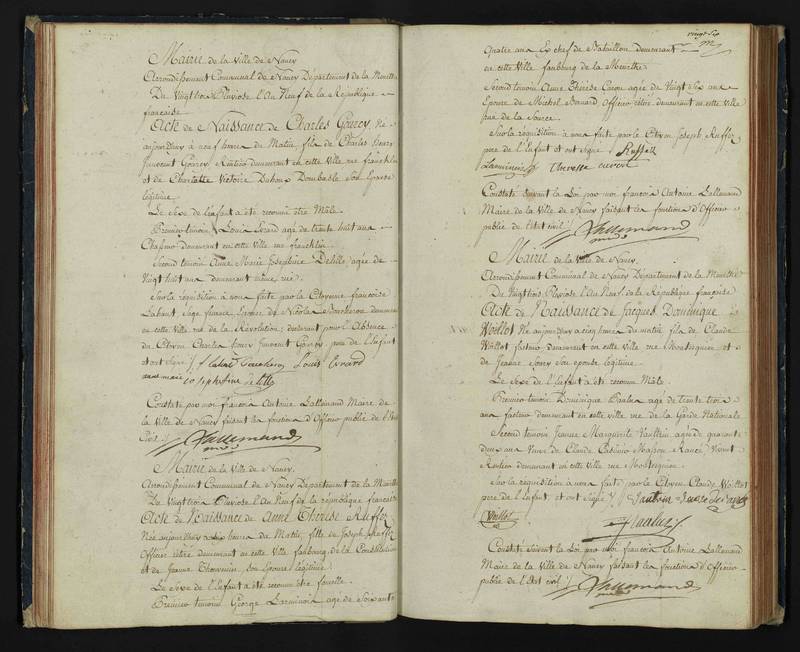 Mairie de la Ville de Nancy
Arrondissement Communal de Nancy Département de la Meurthe
Du Vingt trois Pluviose l'An Neuf de la République
française
Acte de Naissance de Charles Gouvy, Né
aujourdhuy a neuf heures du Matin, fils de Charles
Gouvy demeurant en cette Ville rue franklin
et de Charlotte Victoire Dombasle Son Epouse
légitime
Le Sexe de l'enfant a été reconnu être Mâle.
Premier temoin Louis Evrard agé de trente huit ans
demeurant en cette Ville rue franklin.
Second temoin Anne Marie Josephine Delille agée de
Vingt huit ans demeurant même rue.
Sur la réquisition à nous faite par la Citoyenne françoise
Labaut, Sage femme Epouse de Nicolas demeurant
en cette Ville rue de la Révolution, déclarant pour l'Absence
du Citoyen Charles Gouvy, pere de l'Enfant
et ont signé Louis Evrard
anne marie josephine delille
Constaté par moi françois Antoine Lallemand Maire de
la Ville de Nancy faisant les fonctions d'Officier public de l'Etat
Civil Lallemand
Mairie de la Ville de Nancy.
Arrondissement Communal de Nancy Département de la Meurthe
Du Vingt trois Pluviose l'An Neuf de la république française
Acte de Naissance de Anne Therese Ruffer
Née aujourdhuy heures du Matin, fille de Joseph Ruffer
Officier rétiré demeurant en cette Ville faubourg de la Constitution
et de Jeanne Thouvenin, Son Epouse légitime.
Le Sexe de l'Enfant a été reconnu être femelle.
Premier temoin George Larminois agé de Soixante
vingt sep
Quatre ans Ex chef de Bataillon demeurant
en cette Ville faubourg de la Meurthe
Second temoin Anne Thérese agée de Vingt Six ans
Epouse de Michel Officier rétiré demeurant en cette Ville
rue de la Source.
Sur la réquisition à nous faite par le Citoyen Joseph Ruffer
pere de l'Enfant et ont signé Ruffer
Larminois Theresse
Constaté suivant la Loi par moi françois Antoine Lallemand
Maire de la Ville de Nancy faisant les fonctions d'Officier
public de l'état civil Lallemand
Mairie de la Ville de Nancy.
Arrondissement Communal de Nancy Département de la Meurthe
Du Vingt trois Pluviose l'An Neuf de la République française
Acte de Naissance de Jacques Dominique
Voillot Né aujourdhuy a cinq heures du matin fils de Claude
Voillot facteur demeurant en cette Ville rue Montesquieu et
de Jeanne Son epouse légitime.
Le Sexe de l'Enfant a été reconnu Mâle.
Premier temoin Dominique agé de trente trois
ans facteur demeurant en cette ville rue de la Garde Nationale
Second temoin Jeanne Marguerite Vautrin agée de quarante
deux ans Veuve de Claude Vivant
Rentier demeurant en cette Ville rue Montesquieu
Sur la réquisition à nous faite par le Citoyen Claude Voillot
pere de l'Enfant et ont signé Vautrin
Voillot
Constaté suivant la Loi par moi françois Antoine Lallemand
Maire de la Ville de Nancy faisant les fonctions d'Officier
public de l'Etat civil Lallemand